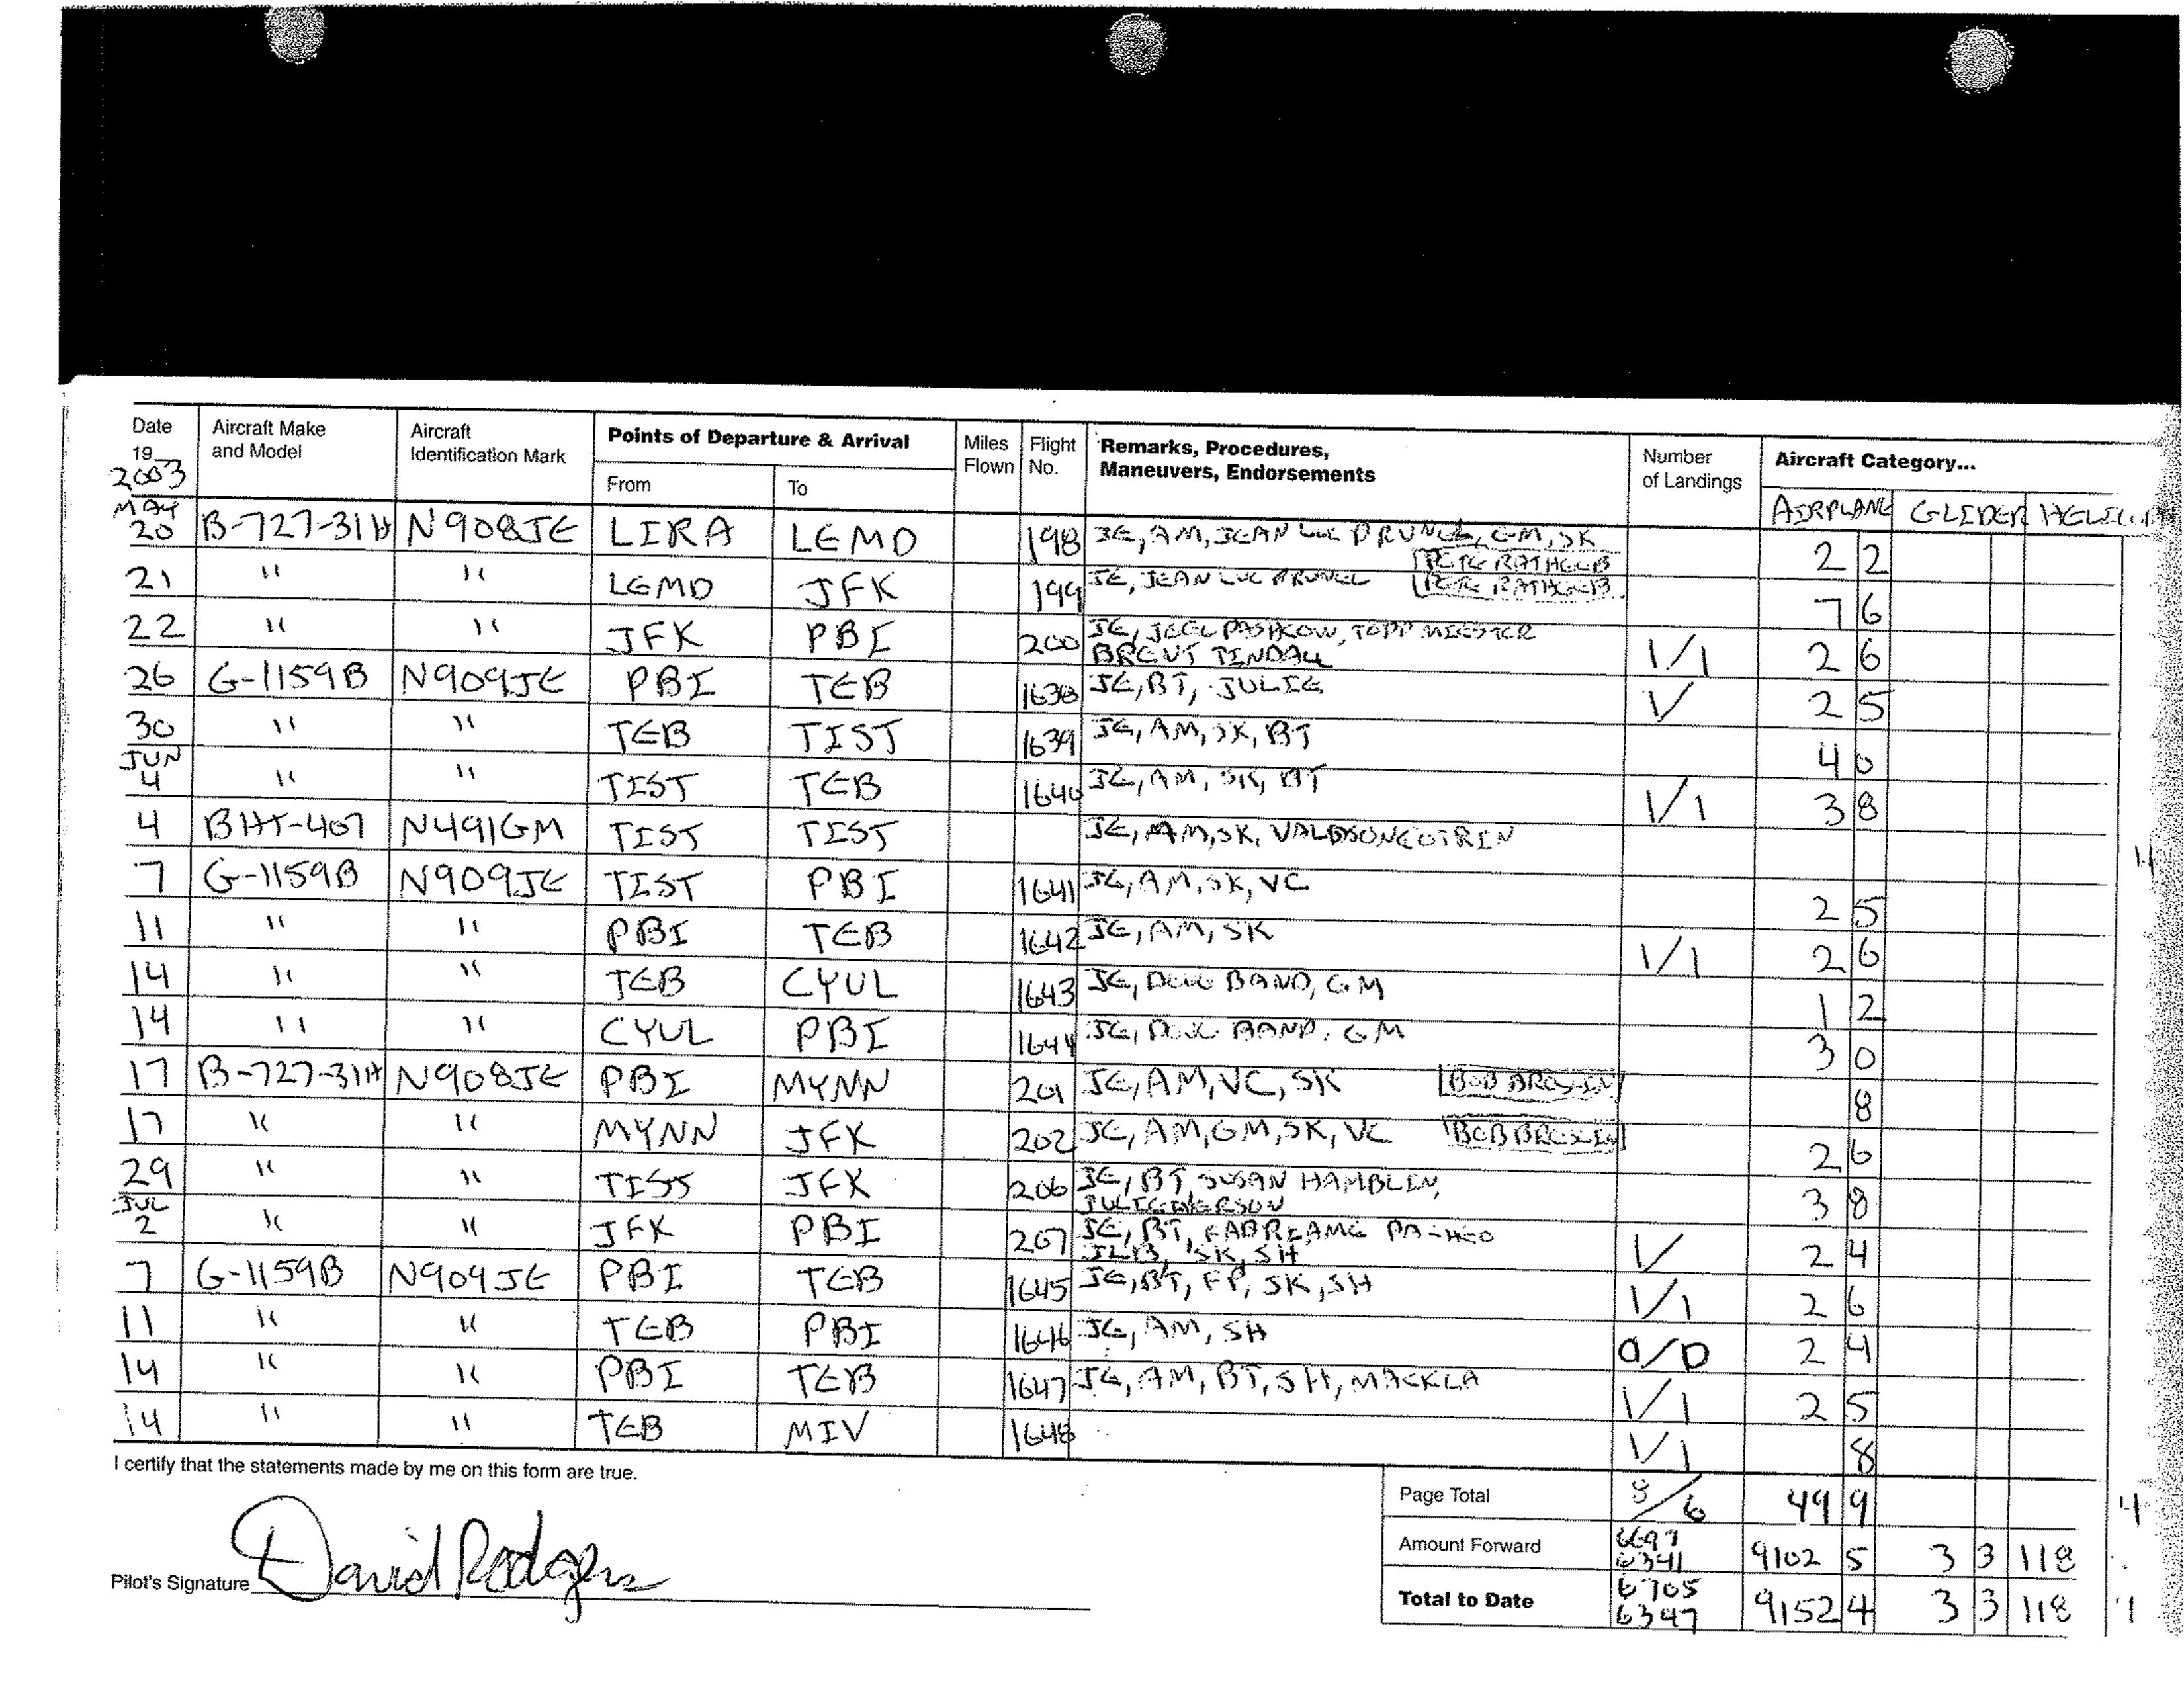 Date Aircraft Make and Model Aircraft Identification Mark Points of Departure & Arrival Miles Flown Flight No. Remarks, Procedures, Maneuvers, Endorsements Number of Landings Aircraft Category...
19 2003 From To AIRPLANE GLIDER
MAY 20 B-727-31H N908JE LIRA LEMD 198 JE, AM, JEAN LUC BRUNEL, GM, SK PETE RATHGEB 2 2
21 " " LEMD JFK 199 JE, JEAN LUC BRUNEL PETE RATHGEB 7 6
22 " " JFK PBI 200 JE, JOEL PASHKOW, TODD MEISTER 1/1 2 6
BRENT TINDALL
26 G-1159B N909JE PBI TEB 1638 JE, BT, JULIE 1/ 2 5
30 " " TEB TIST 1639 JE, AM, SK, BT 4 0
JUN 4 " " TIST TEB 1640 JE, AM, SK, BT 1/1 3 8
4 BHT-407 N491GM TIST TIST JE, AM, SK,
7 G-1159B N909JE TIST PBI 1641 JE, AM, SK, VC 2 5
11 " " PBI TEB 1642 JE, AM, SK 1/1 2 6
14 " " TEB CYUL 1643 JE, DOUG BAND, GM 1 2
14 " " CYUL PBI 1644 JE, DOUG BAND, GM 3 0
17 B-727-31H N908JE PBI MYNN 201 JE, AM, VC, SK BOB 8
17 " " MYNN JFK 202 JE, AM, GM, SK, VC BOB 2 6
29 " " TIST JFK 206 JE, BT, SUSAN HAMBLIN, 3 8
JULIE
JUL 2 " " JFK PBI 207 JE, BT, 1/ 2 4
SK, SH
7 G-1159B N909JE PBI TEB 1645 JE, BT, FP, SK, SH 1/1 2 6
11 " " TEB PBI 1646 JE, AM, SH 0/0 2 4
14 " " PBI TEB 1647 JE, AM, BT, SH, 1/1 2 5
14 " " TEB MIV 1648 1/1 8
I certify that the statements made by me on this form are true.
Page Total 8/6 49 9
Amount Forward 6697 6341 9102 5 3 3 118
Total to Date 6705 6347 9152 4 3 3 118
Pilot's Signature David Rodgers